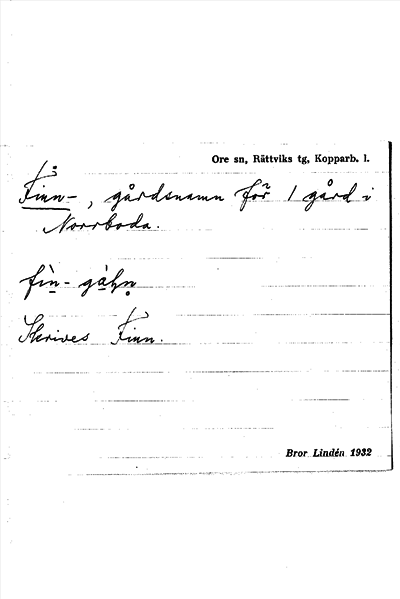 Ore sn, Rättviks tg, Kopparb. l.
Finn-, gårdsnamn för 1 gård i
Norrboda.
fìn- gàhn
Skrives Finn.
Bror Lindén 1932